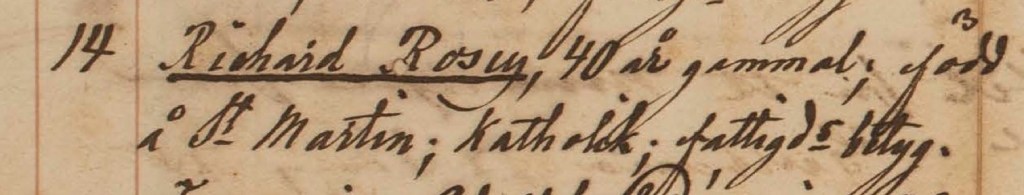 14 Richard Rosey, 40 år gammal; född
å St Martin; Katholik; fattigds betyg.